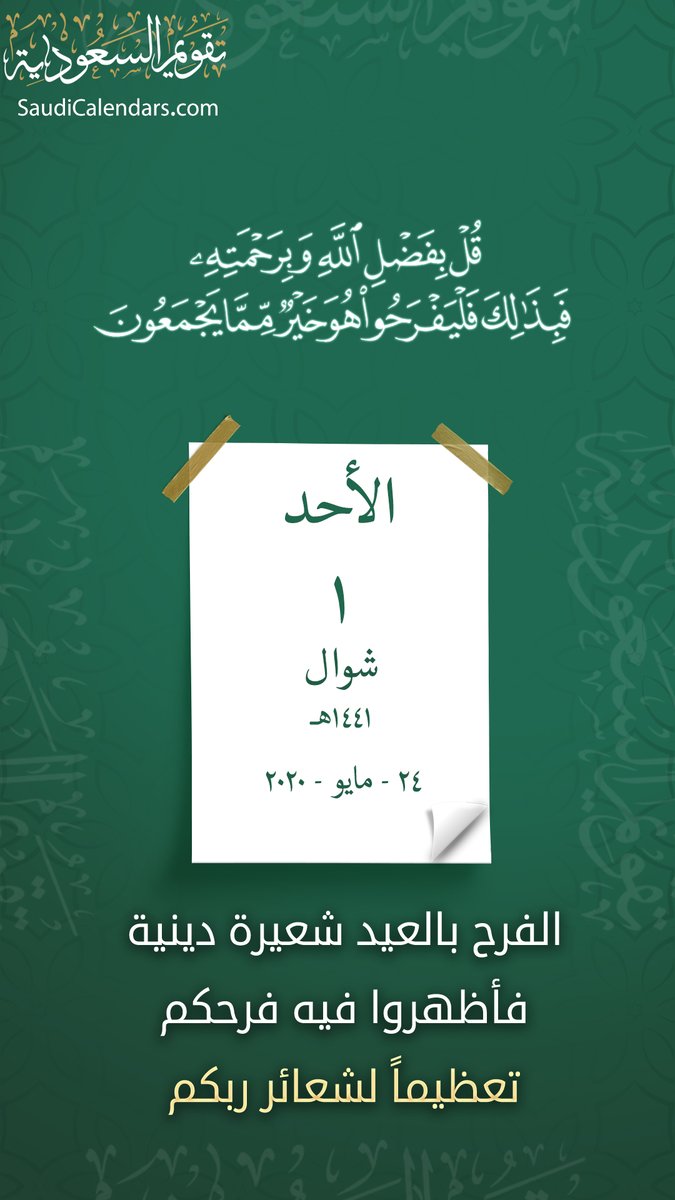 تقويم السعودية
SaudiCalendars.com
قُلۡ بِفَضۡلِ ٱللَّهِ وَبِرَحۡمَتِهِۦ
فَبِذَٰلِكَ فَلۡيَفۡرَحُواْ هُوَ خَيۡرٞ مِّمَّا يَجۡمَعُونَ
الأحد
١
شوال
١٤٤١هـ
٢٤ - مايو - ٢٠٢٠
الفرح بالعيد شعيرة دينية
فأظهروا فيه فرحكم
تعظيماً لشعائر ربكم